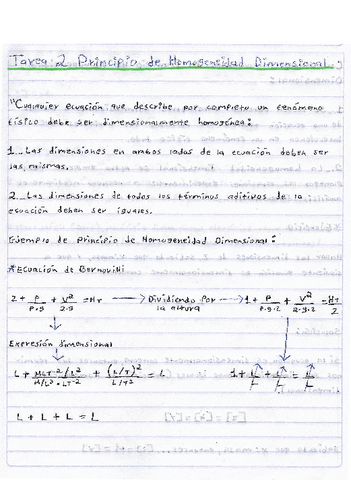 Tarea 2 Principio de Homogeneidad Dimensional.
"Cualquier ecuación que describe por completo un fenómeno
físico debe ser dimensionalmente homogénea:
1.. Las dimensiones en ambos lados de la ecuación deben ser
las mismas.
2.. Las dimensiones de todos los términos aditivos de la
ecuación deben ser iguales.
Ejemplo de Principio de Homogeneidad Dimensional:
*Ecuación de Bernoulli
z + P/ρ.g + V²/2.g = Hr → Dividiendo por la altura → 1 + P/ρ.g.z + V²/2.g.z = Hr/z
Expresión dimensional
L + MLT⁻²/L² / M/L³.LT⁻² + (L/T)²/L/T² = L 1 + L/L + L/L = L/L
L + L + L = L